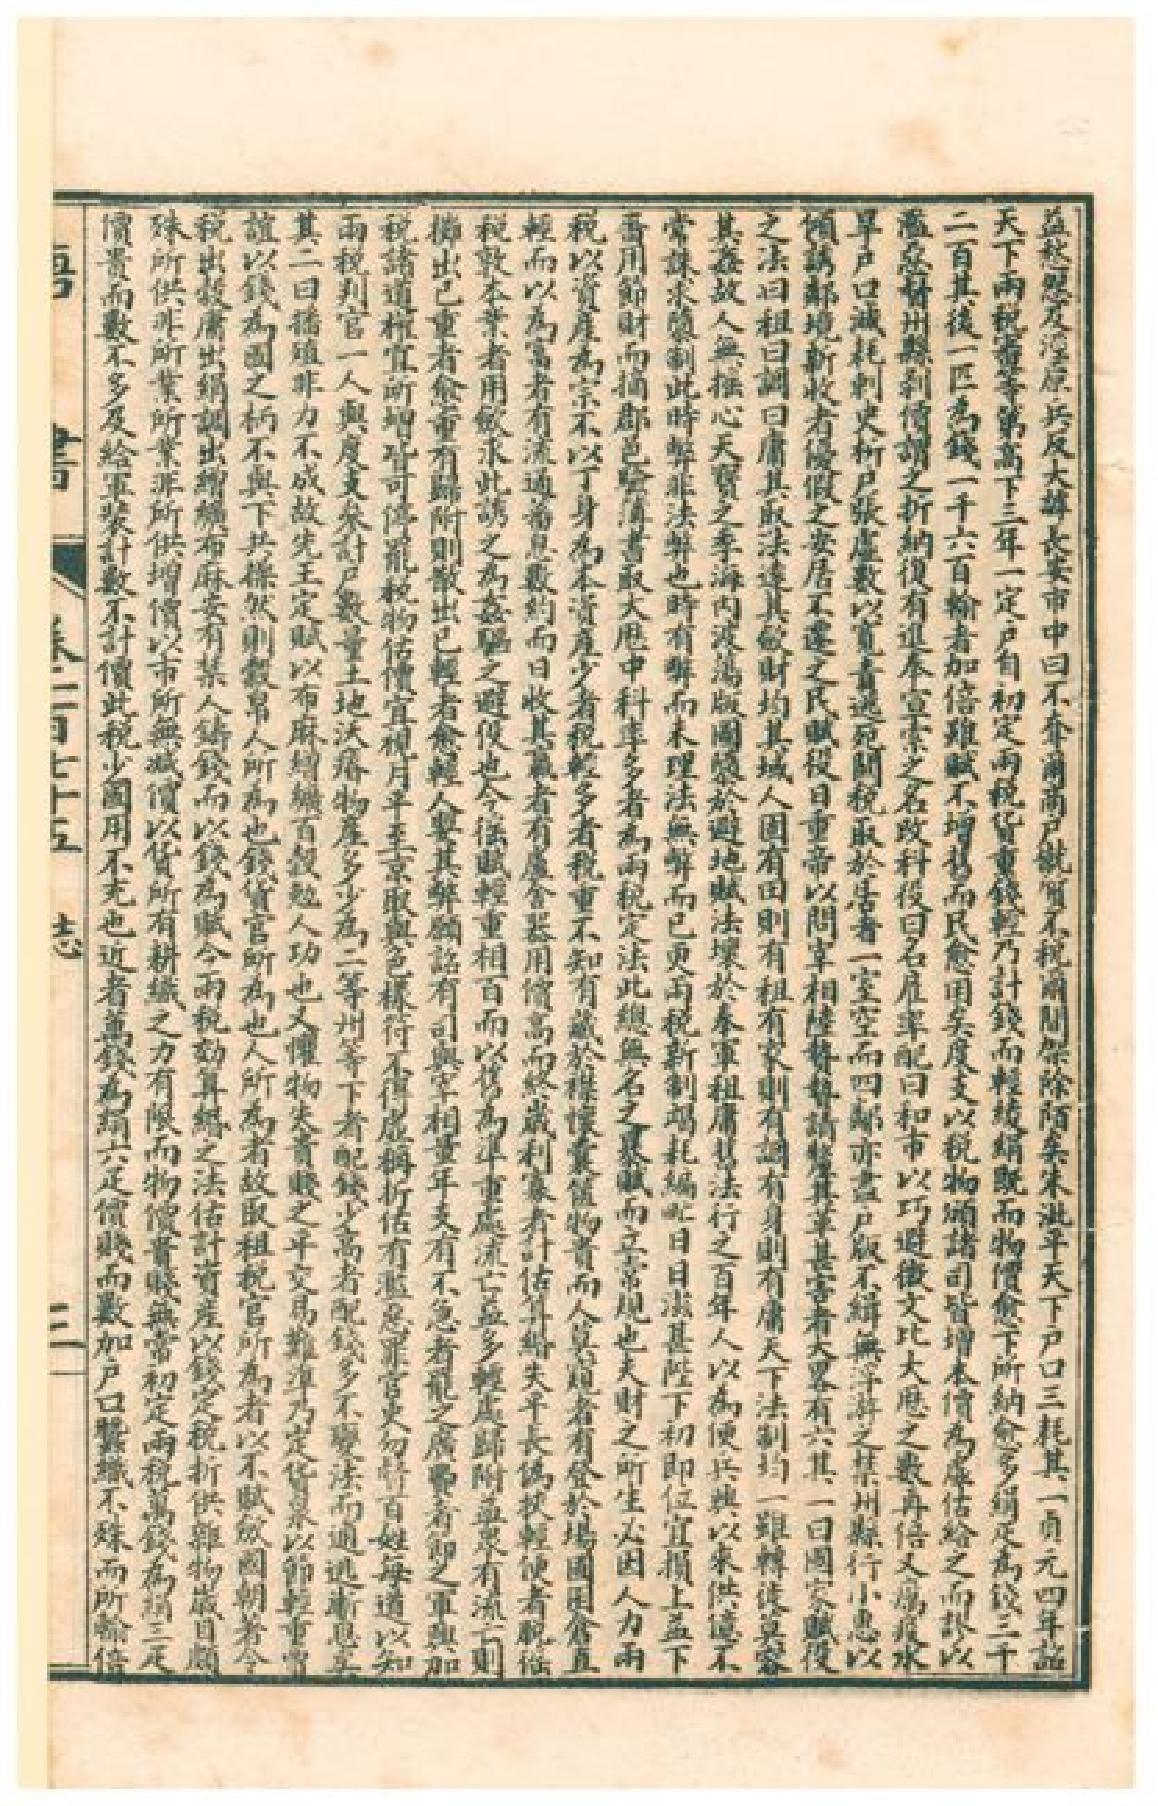 益愁怨及涇原兵反大譁長安市中曰不奪爾商戶僦質不稅爾間架除陌矣朱泚平天下戶口三耗其一貞元四年詔
天下兩稅審等第高下三年一定戶自初定兩稅貨重錢輕乃計錢而輸綾絹既而物價愈下所納愈多絹疋為錢三千
二百其後一匹為錢一千六百輸者加倍雖賦不增舊而民愈困矣度支以稅物頒諸司皆增本價為虛估給之而繆以
濫惡督州縣剝價謂之折納復有進奉宣索之名改科役曰召雇率配曰和市以巧避微文比大曆之數再倍又癘疫水
旱戶口減耗刺史析戶張虛數以寬責逃死闕稅取於居者一室空而四鄰亦盡戶版不緝無浮游之禁州縣行小惠以
傾誘鄰境新收者優假之安居不遷之民賦役日重帝以問宰相陸贄贄請釐革其甚害者大畧有六其一曰國家賦役
之法曰租曰調曰庸其取法遠其斂財均其域人固有田則有租有家則有調有身則有庸天下法制均一雖轉徙莫容
其姦故人無搖心天寶之季海內波蕩版圖隳於避地賦法壞於奉軍租庸舊法行之百年人以為便兵興以來供億不
常誅求隳制此時弊非法弊也時有弊而未理法無弊而已更兩稅新制竭耗編甿日日滋甚陛下初即位宜損上益下
嗇用節財而摘郡邑驗簿書取大曆中科率多者為兩稅定法此總無名之暴賦而立常規也夫財之所生必因人力兩
稅以資產為宗不以丁身為本資產少者稅輕多者稅重不知有藏於襟懷囊篋物貴而人莫窺者有登於場圃囷倉直
輕而以為富者有流通蕃息數約而日收其贏者有廬舍器用價高而終歲利寡者計估算緡失平長偽挾輕便者脫徭
稅敦本業者困斂求此誘之為姦驅之避役也今徭賦輕重相百而以舊為準重處流亡益多輕處歸附益眾有流亡則
攤出已重者愈重有歸附則散出已輕者愈輕人嬰其弊願詔有司與宰相量年支有不急者罷之廣費者節之軍興加
稅諸道權宜所增皆可停罷稅物估價宜視月平至京與色樣符不得虛稱折估有濫惡罪官吏勿督百姓每道以知
兩稅判官一人與度支參計戶數量土地沃瘠物產多少為二等州等下者配錢少高者配錢多不變法而逋逃漸息矣
其二曰播殖非力不成故先王定賦以布麻繒纊百穀勉人功也又懼物失貴賤之平交易難準乃定貨泉以節輕重蓋
誼以錢為國之柄不與下共操然則穀帛人所為也錢貨官所為也人所為者故取租稅官所為者以不賦斂國朝著令
稅出穀庸出絹調出繒纊布麻安有禁人鑄錢而以錢為賦今兩稅効算緡之法估計資產以錢定稅折供雜物歲目頗
殊所供非所業所業非所供增價以市所無減價以貨所有耕織之力有限而物價貴賤無常初定兩稅萬錢為絹三疋
價貴而數不多及給軍裝計數不計價此稅少國用不充也近者萬錢為絹六疋價賤而數加戶口蠶織不殊而所輸倍
卷二百七十五 志
三